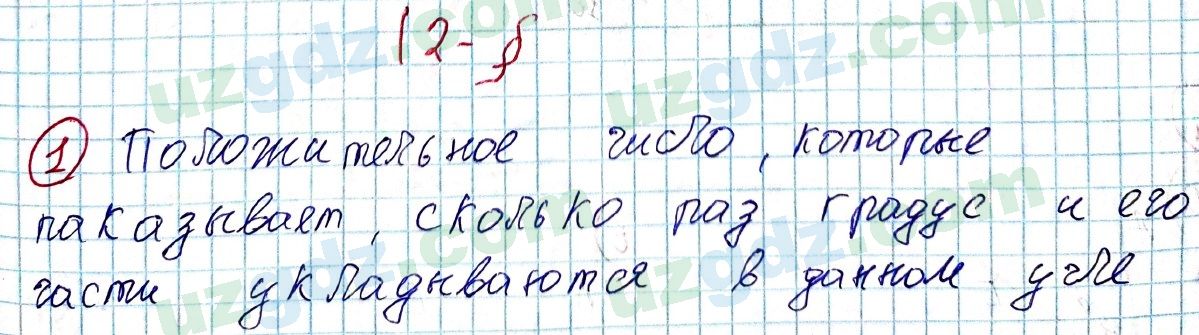 12-§
1 Положительное число, которые
паказывает, сколько раз градус и его
части укладываются в данном угле